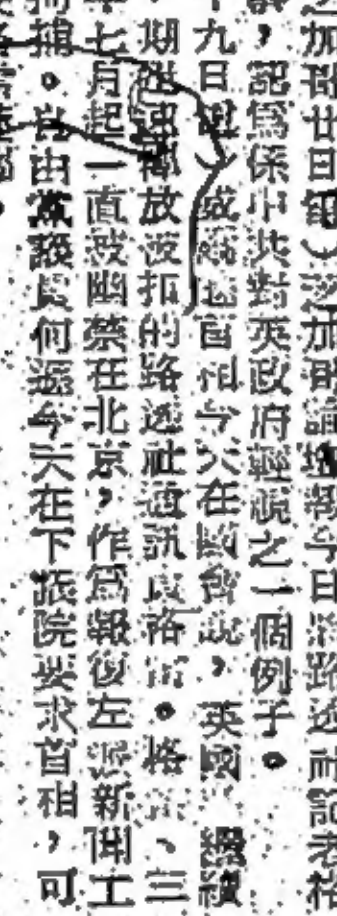 之加哥廿日電）芝加哥論壇報今日將路透社記者格
，認爲係中共對英政府輕視之一個例子。
十九日電）威爾遜首相今天在國會說，英國 繼續
期迅速釋放被扣的路透社通訊員格 。格 、三
年七月起一直被幽禁在北京，作爲報復左派新聞工
拘捕。自由黨議員何 今天在下議院要求首相，可